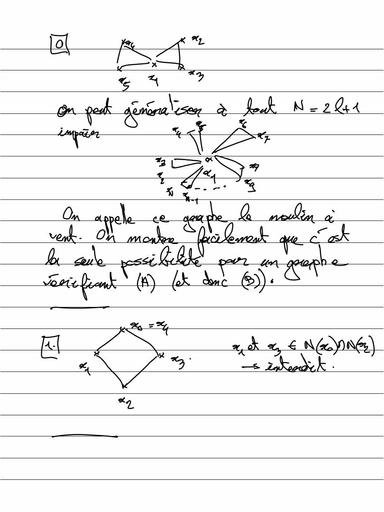 0
x4 x2
x5 x1 x3
On peut généraliser à tout N = 2l+1
impair
On appelle ce graphe le moulin à
vent. On montre facilement que c'est
la seule possibilité pour un graphe
vérifiant (A) (et donc (B)).
1.
x0 = x4
x1 x3
x2
x1 et x3 ∈ N(x0) ∩ N(x2)
→ interdit.